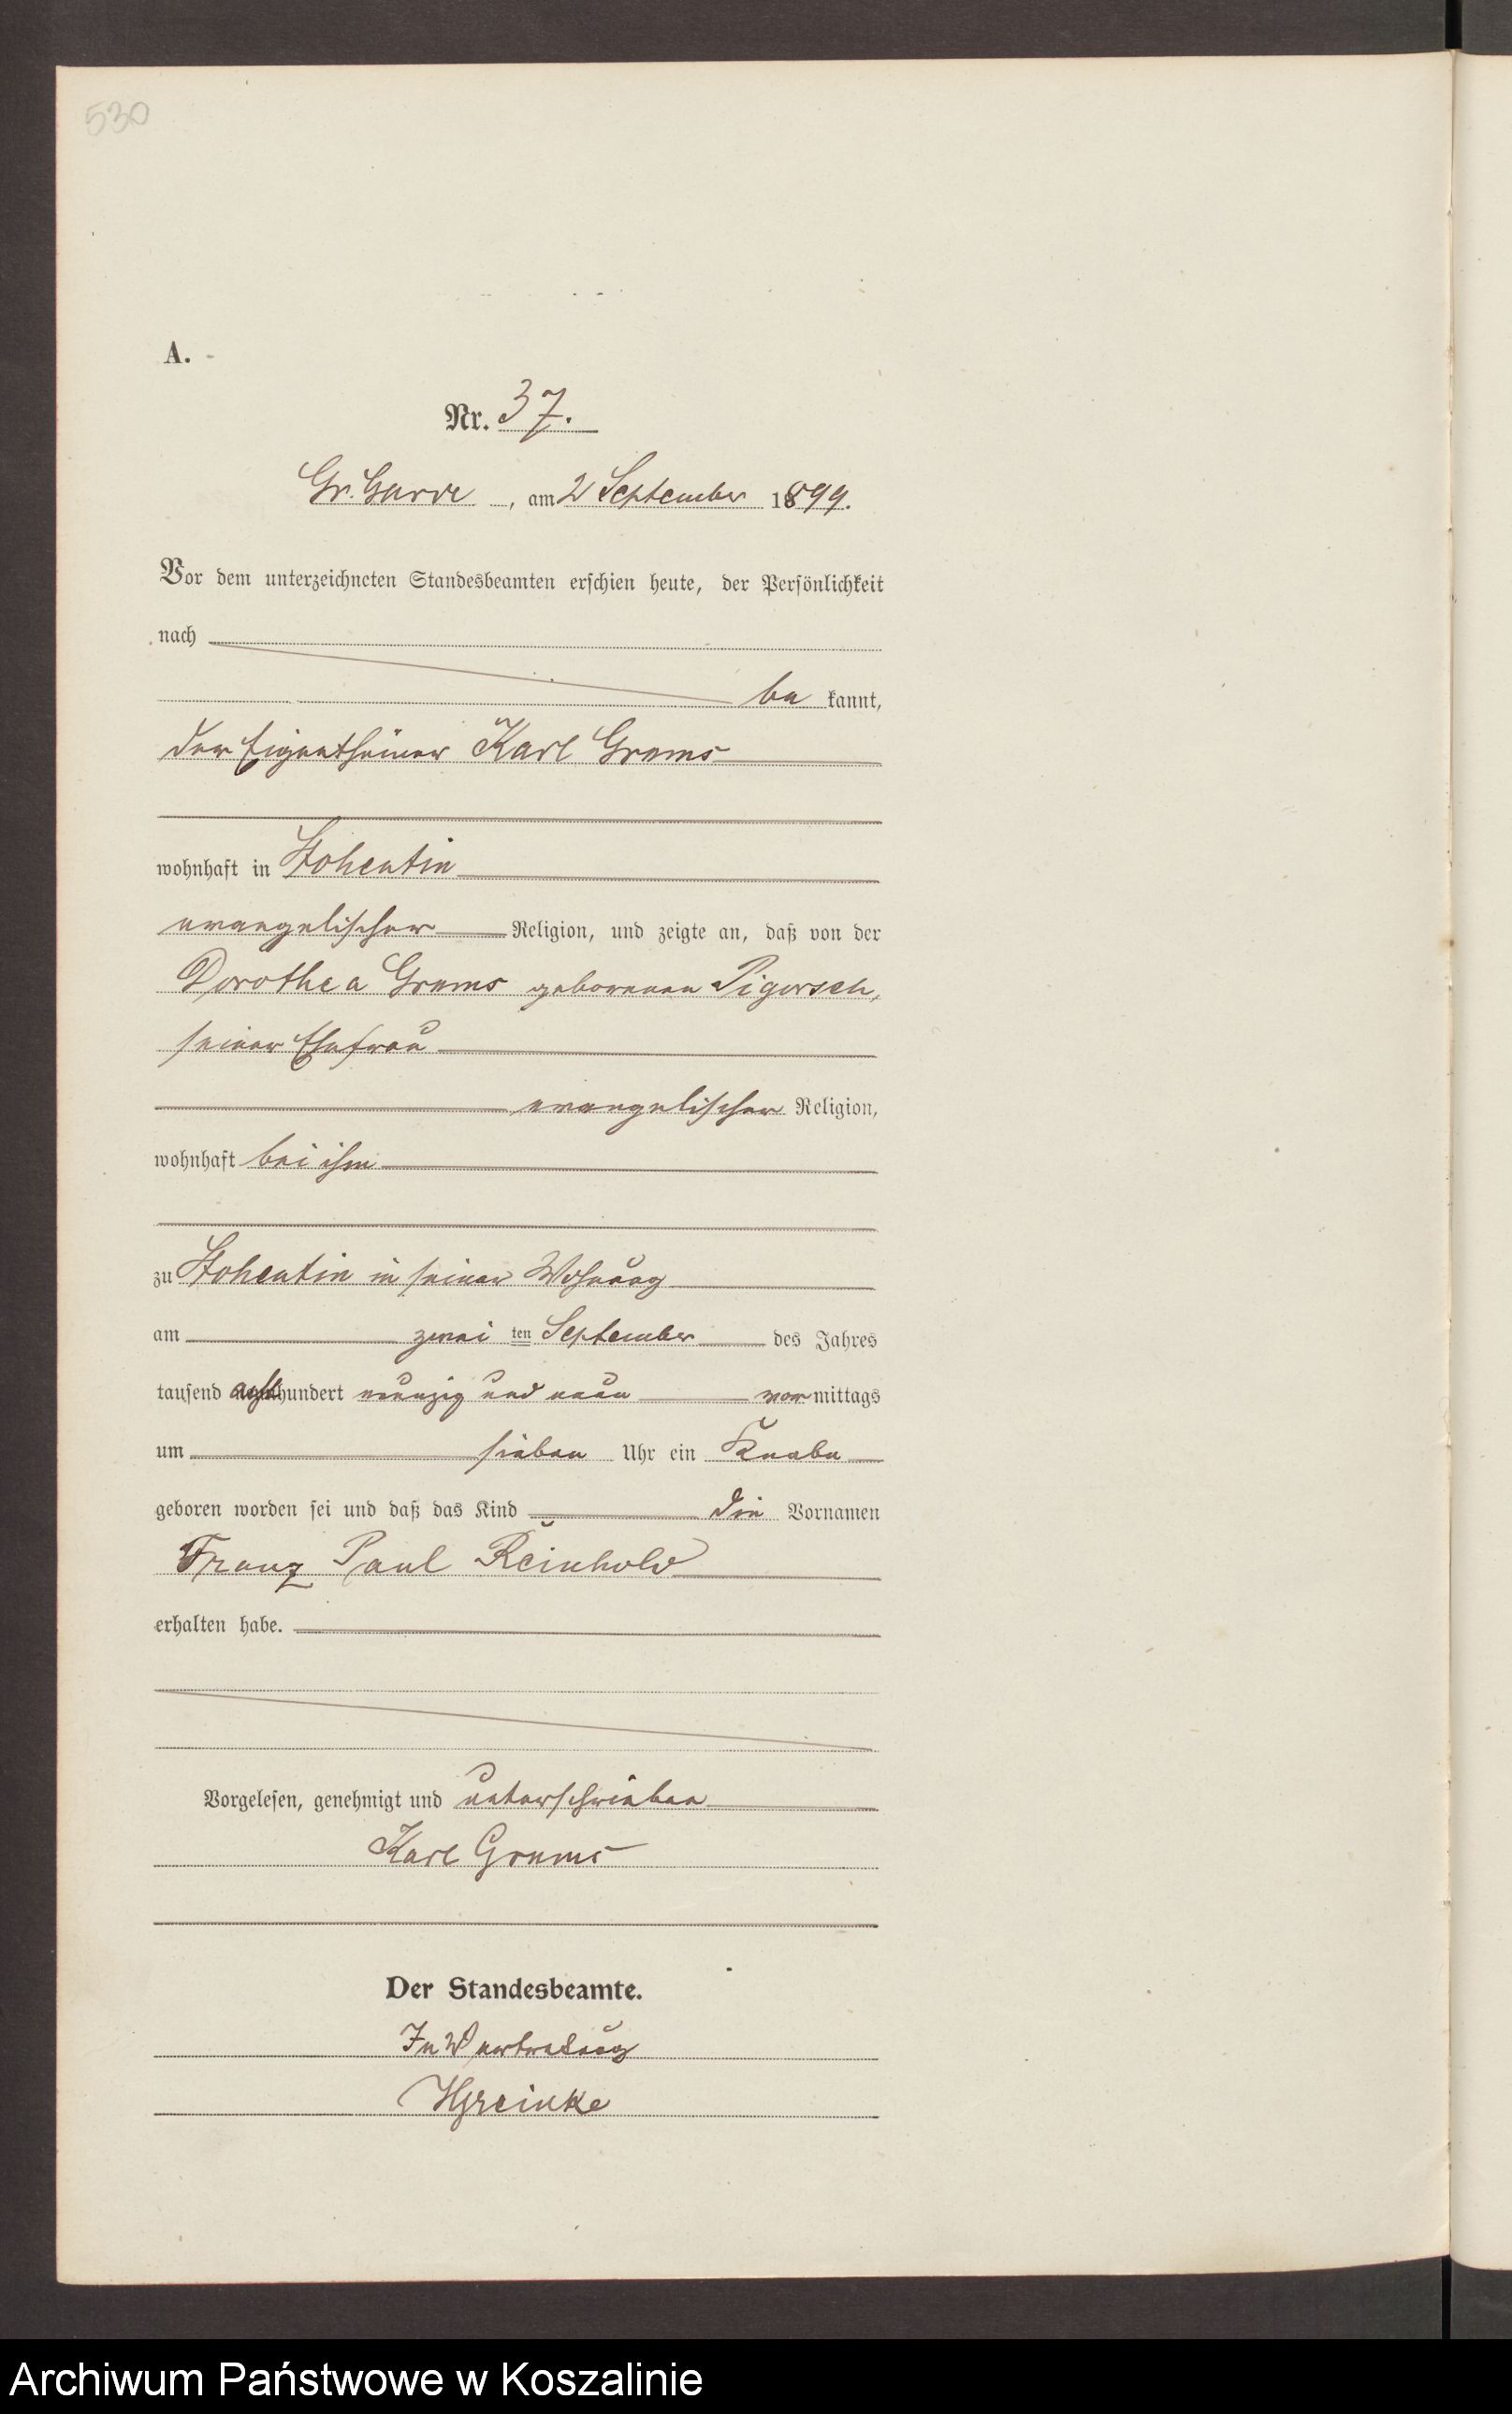 530
A.
Nr. 37.
Gr. Garde, am 2 September 1899.
Vor dem unterzeichneten Standesbeamten erschien heute, der Persönlichkeit
nach
be kannt,
der Eigenthümer Karl Grems
wohnhaft in Stohentin
evangelischer Religion, und zeigte an, daß von der
Dorothea Grems geborenen Pigorsch,
seiner Ehefrau
evangelischer Religion,
wohnhaft bei ihm
zu Stohentin in seiner Wohnung
am zwei ten September des Jahres
tausend achthundert neunzig und neun vor mittags
um sieben Uhr ein Knabe
geboren worden sei und daß das Kind die Vornamen
Franz Paul Reinhold
erhalten habe.
Vorgelesen, genehmigt und unterschrieben
Karl Grems
Der Standesbeamte.
In Vertretung
Archiwum Państwowe w Koszalinie